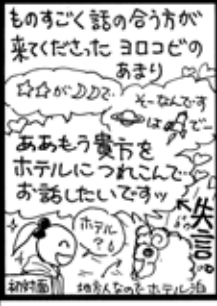 ものすごく話の合う方が
来てくださった ヨロコビの
あまり
☆☆が♪♪で
そーなんです
は でー
ああもう貴方を
ホテルにつれこんで
お話したいですッ
ホテル?
失言。
初対面
地方人なのでホテル泊